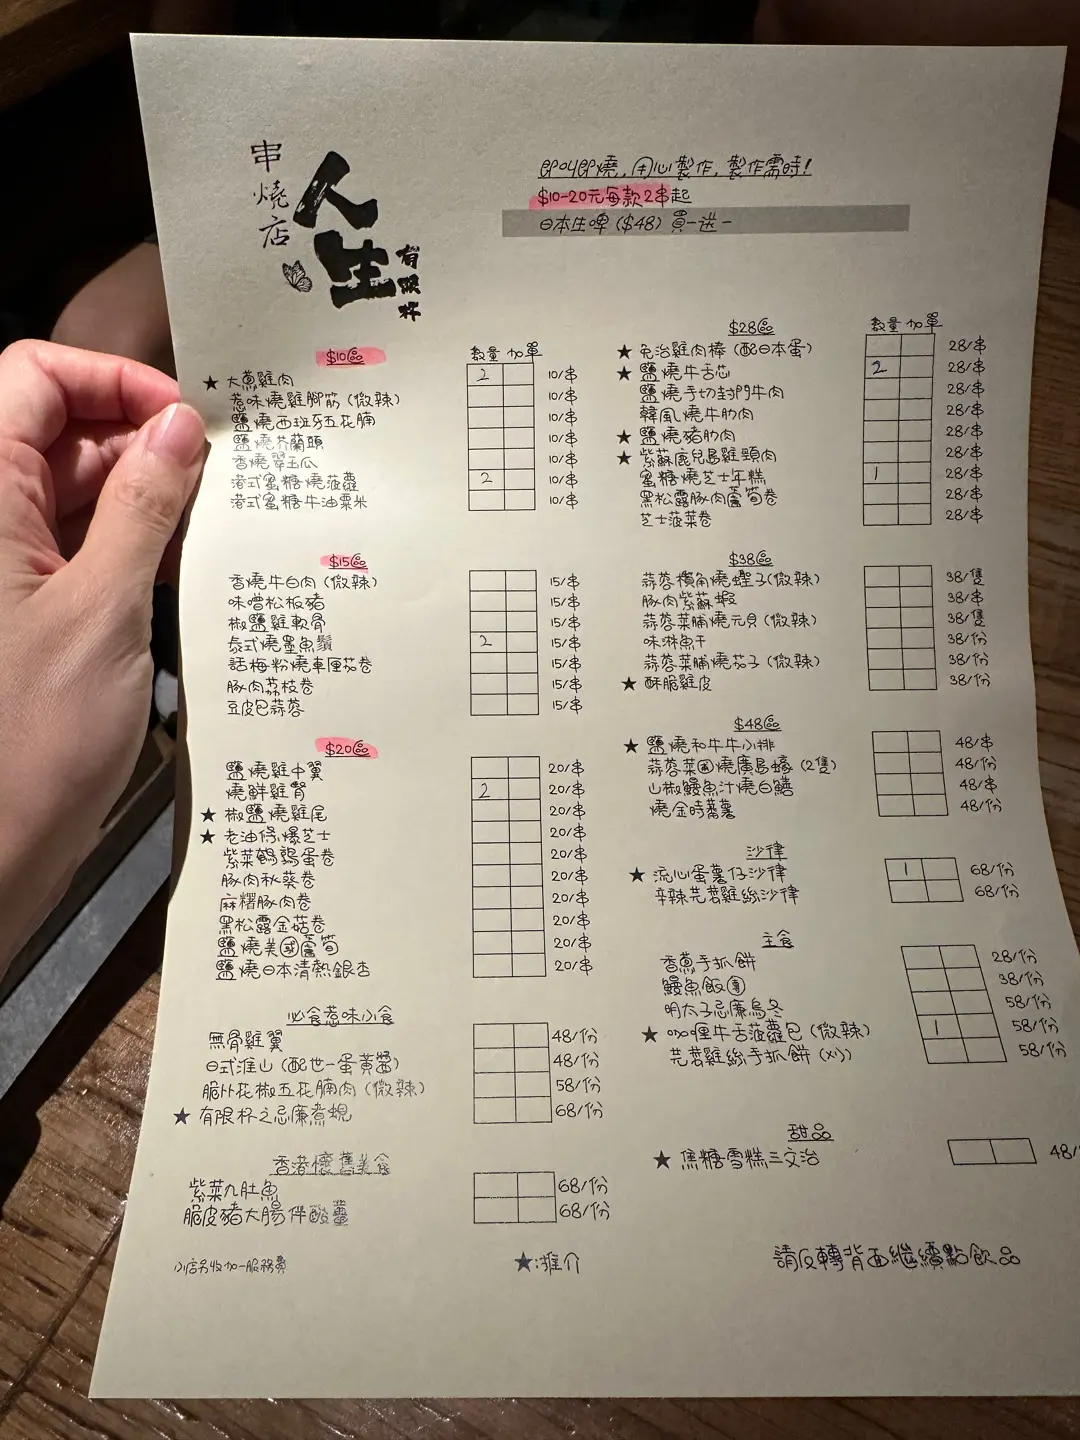 串燒店
人生
有限杯
即叫即燒，用心製作，製作需時！
$10-20元每款2串起
日本生啤 ($48) 買一送一
$10區
數量 加單
★ 大蔥雞肉 2 10/串
惹味燒雞腳筋 (微辣) 10/串
鹽燒西班牙五花腩 10/串
鹽燒芥蘭頭 10/串
香燒翠玉瓜 10/串
港式蜜糖燒菠蘿 2 10/串
港式蜜糖牛油粟米 10/串
$15區
香燒牛白肉 (微辣) 15/串
味噌松板豬 15/串
椒鹽雞軟骨 15/串
泰式燒墨魚鬚 2 15/串
話梅粉燒車厘茄卷 15/串
豚肉荔枝卷 15/串
豆皮包蒜蓉 15/串
$20區
鹽燒雞中翼 20/串
燒鮮雞腎 2 20/串
★ 椒鹽燒雞尾 20/串
★ 老油條爆芝士 20/串
紫菜鵪鶉蛋卷 20/串
豚肉秋葵卷 20/串
麻糬豚肉卷 20/串
黑松露金菇卷 20/串
鹽燒美國蘆筍 20/串
鹽燒日本清熱銀杏 20/串
必食惹味小食
無骨雞翼 48/份
日式淮山 (配世一蛋黃醬) 48/份
脆卜花椒五花腩肉 (微辣) 58/份
★ 有限杯之忌廉煮蜆 68/份
香港懷舊美食
紫菜九肚魚 68/份
脆皮豬大腸伴酸薑 68/份
小店另收加一服務費
$28區
數量 加單
★ 免治雞肉棒 (配日本蛋) 28/串
★ 鹽燒牛舌芯 2 28/串
鹽燒手切封門牛肉 28/串
韓風燒牛肋肉 28/串
★ 鹽燒豬肋肉 28/串
★ 紫蘇鹿兒島雞頸肉 28/串
蜜糖燒芝士年糕 1 28/串
黑松露豚肉蘆筍卷 28/串
芝士菠菜卷 28/串
$38區
蒜蓉欖角燒蟶子 (微辣) 38/隻
豚肉紫蘇蝦 38/串
蒜蓉菜脯燒元貝 (微辣) 38/隻
味淋魚干 38/份
蒜蓉菜脯燒茄子 (微辣) 38/份
★ 酥脆雞皮 38/份
$48區
★ 鹽燒和牛牛小排 48/串
蒜蓉菜圃燒廣島蠔 (2隻) 48/份
山椒鰻魚汁燒白鱔 48/串
燒金時蕃薯 48/份
沙律
★ 流心蛋薯仔沙律 1 68/份
辛辣芫荽雞絲沙律 68/份
主食
香蔥手抓餅 28/份
鰻魚飯團 38/份
明太子忌廉烏冬 58/份
★ 咖喱牛舌菠蘿包 (微辣) 1 58/份
芫荽雞絲手抓餅 (凍) 58/份
甜品
★ 焦糖雪糕三文治 48/
★推介
請反轉背面繼續點飲品